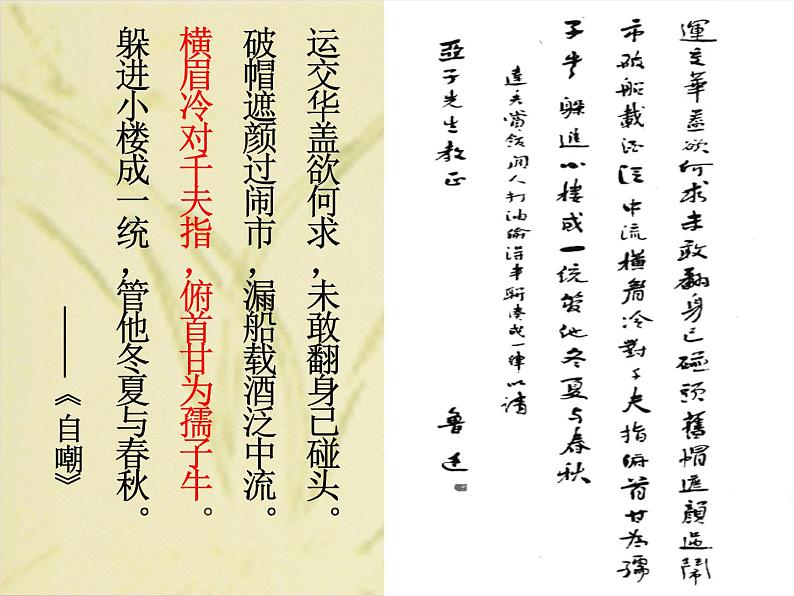 运交华盖欲何求，未敢翻身已碰头。
破帽遮颜过闹市，漏船载酒泛中流。
横眉冷对千夫指，俯首甘为孺子牛。
躲进小楼成一统，管他冬夏与春秋。
——《自嘲》
運交華蓋欲何求未敢翻身已碰頭舊帽遮顏過鬧
市破船載酒泛中流橫眉冷對千夫指俯首甘為孺
子牛躲進小樓成一統管他冬夏与春秋
達夫賞飯閒人打油偷得半聯湊成一律以請
亞子先生教正
魯迅